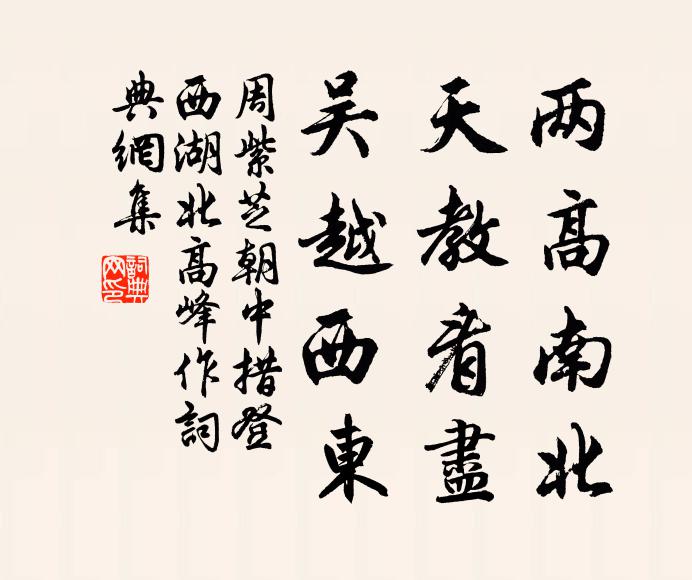 两高南北
天教看盡
吴越西東
周紫芝朝中措登
西湖北高峰作詞
典網集
詞典
网印